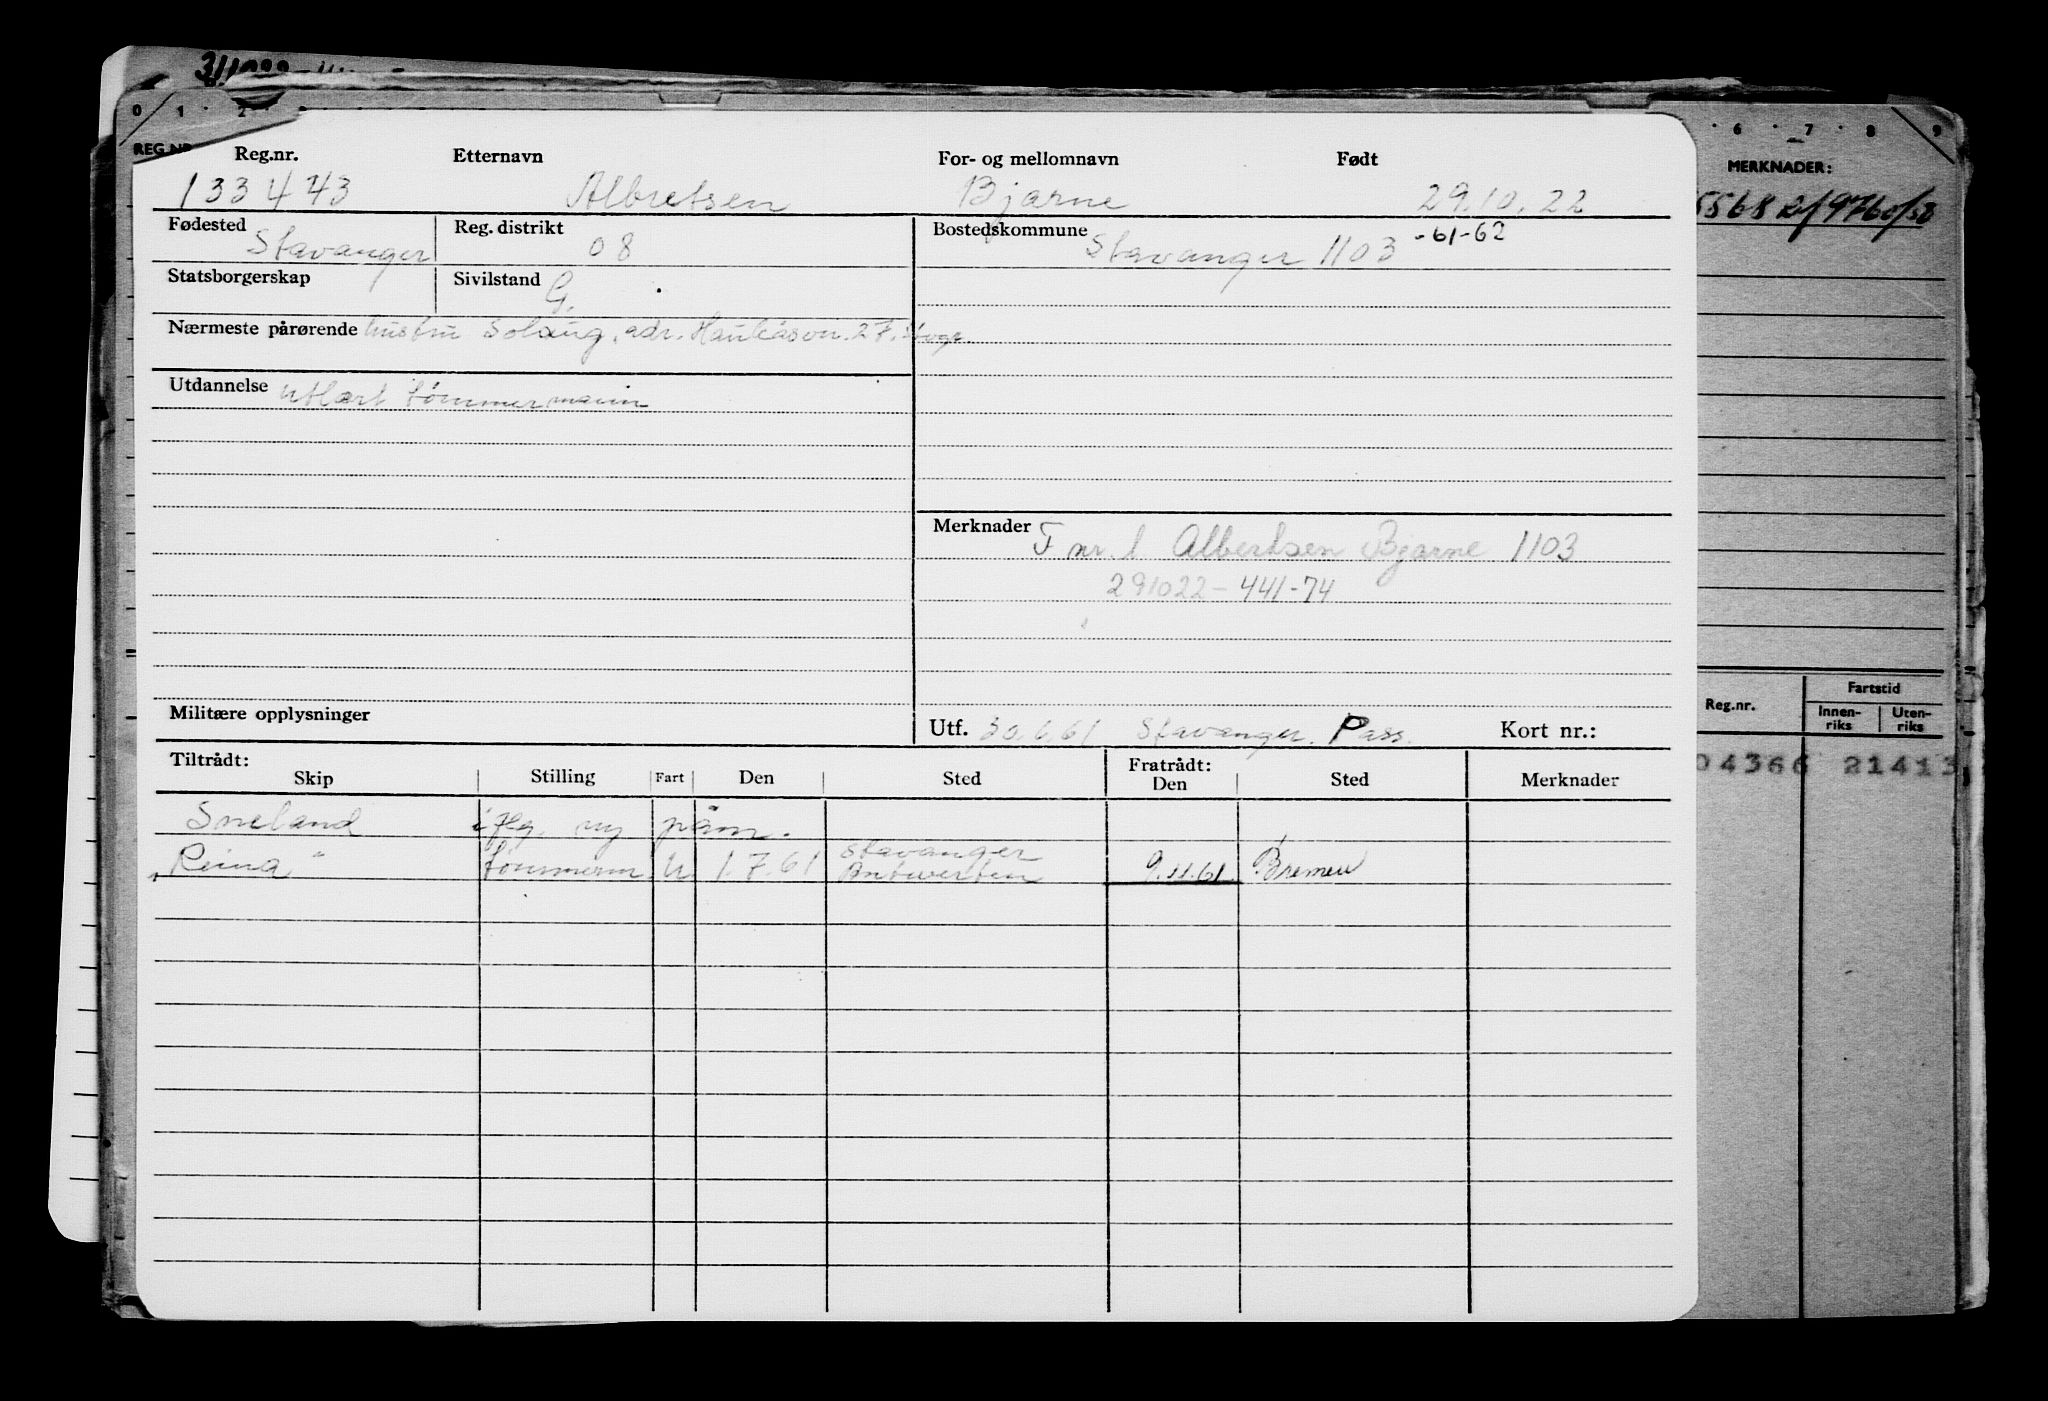 0 1 2
6 7 8 9
REG.NR
MERKNADER:
5568 2/9760/52
Reg.nr. Etternavn For- og mellomnavn Født
133443 Albretsen Bjarne 29.10.22
Fødested Stavanger Reg. distrikt 08 Bostedskommune Stavanger 1103 -61-62
Statsborgerskap Sivilstand G.
Nærmeste pårørende hustru Solaug, adr. 27. Stvgr.
Utdannelse utlært tømmermann
Merknader F nr. 1 Albertsen Bjarne 1103
291022-441-74
Militære opplysninger Utf. 30.6.61 Stavanger. Pass. Kort nr.:
Tiltrådt: Fratrådt:
Skip Stilling Fart Den Sted Den Sted Merknader
Sneland iflg. ny påm.
Reina tømmerm. U. 1.7.61 Stavanger Antwerten 9.11.61. Bremen
Reg.nr. Fartstid
Innen-riks Uten-riks
04366 21413